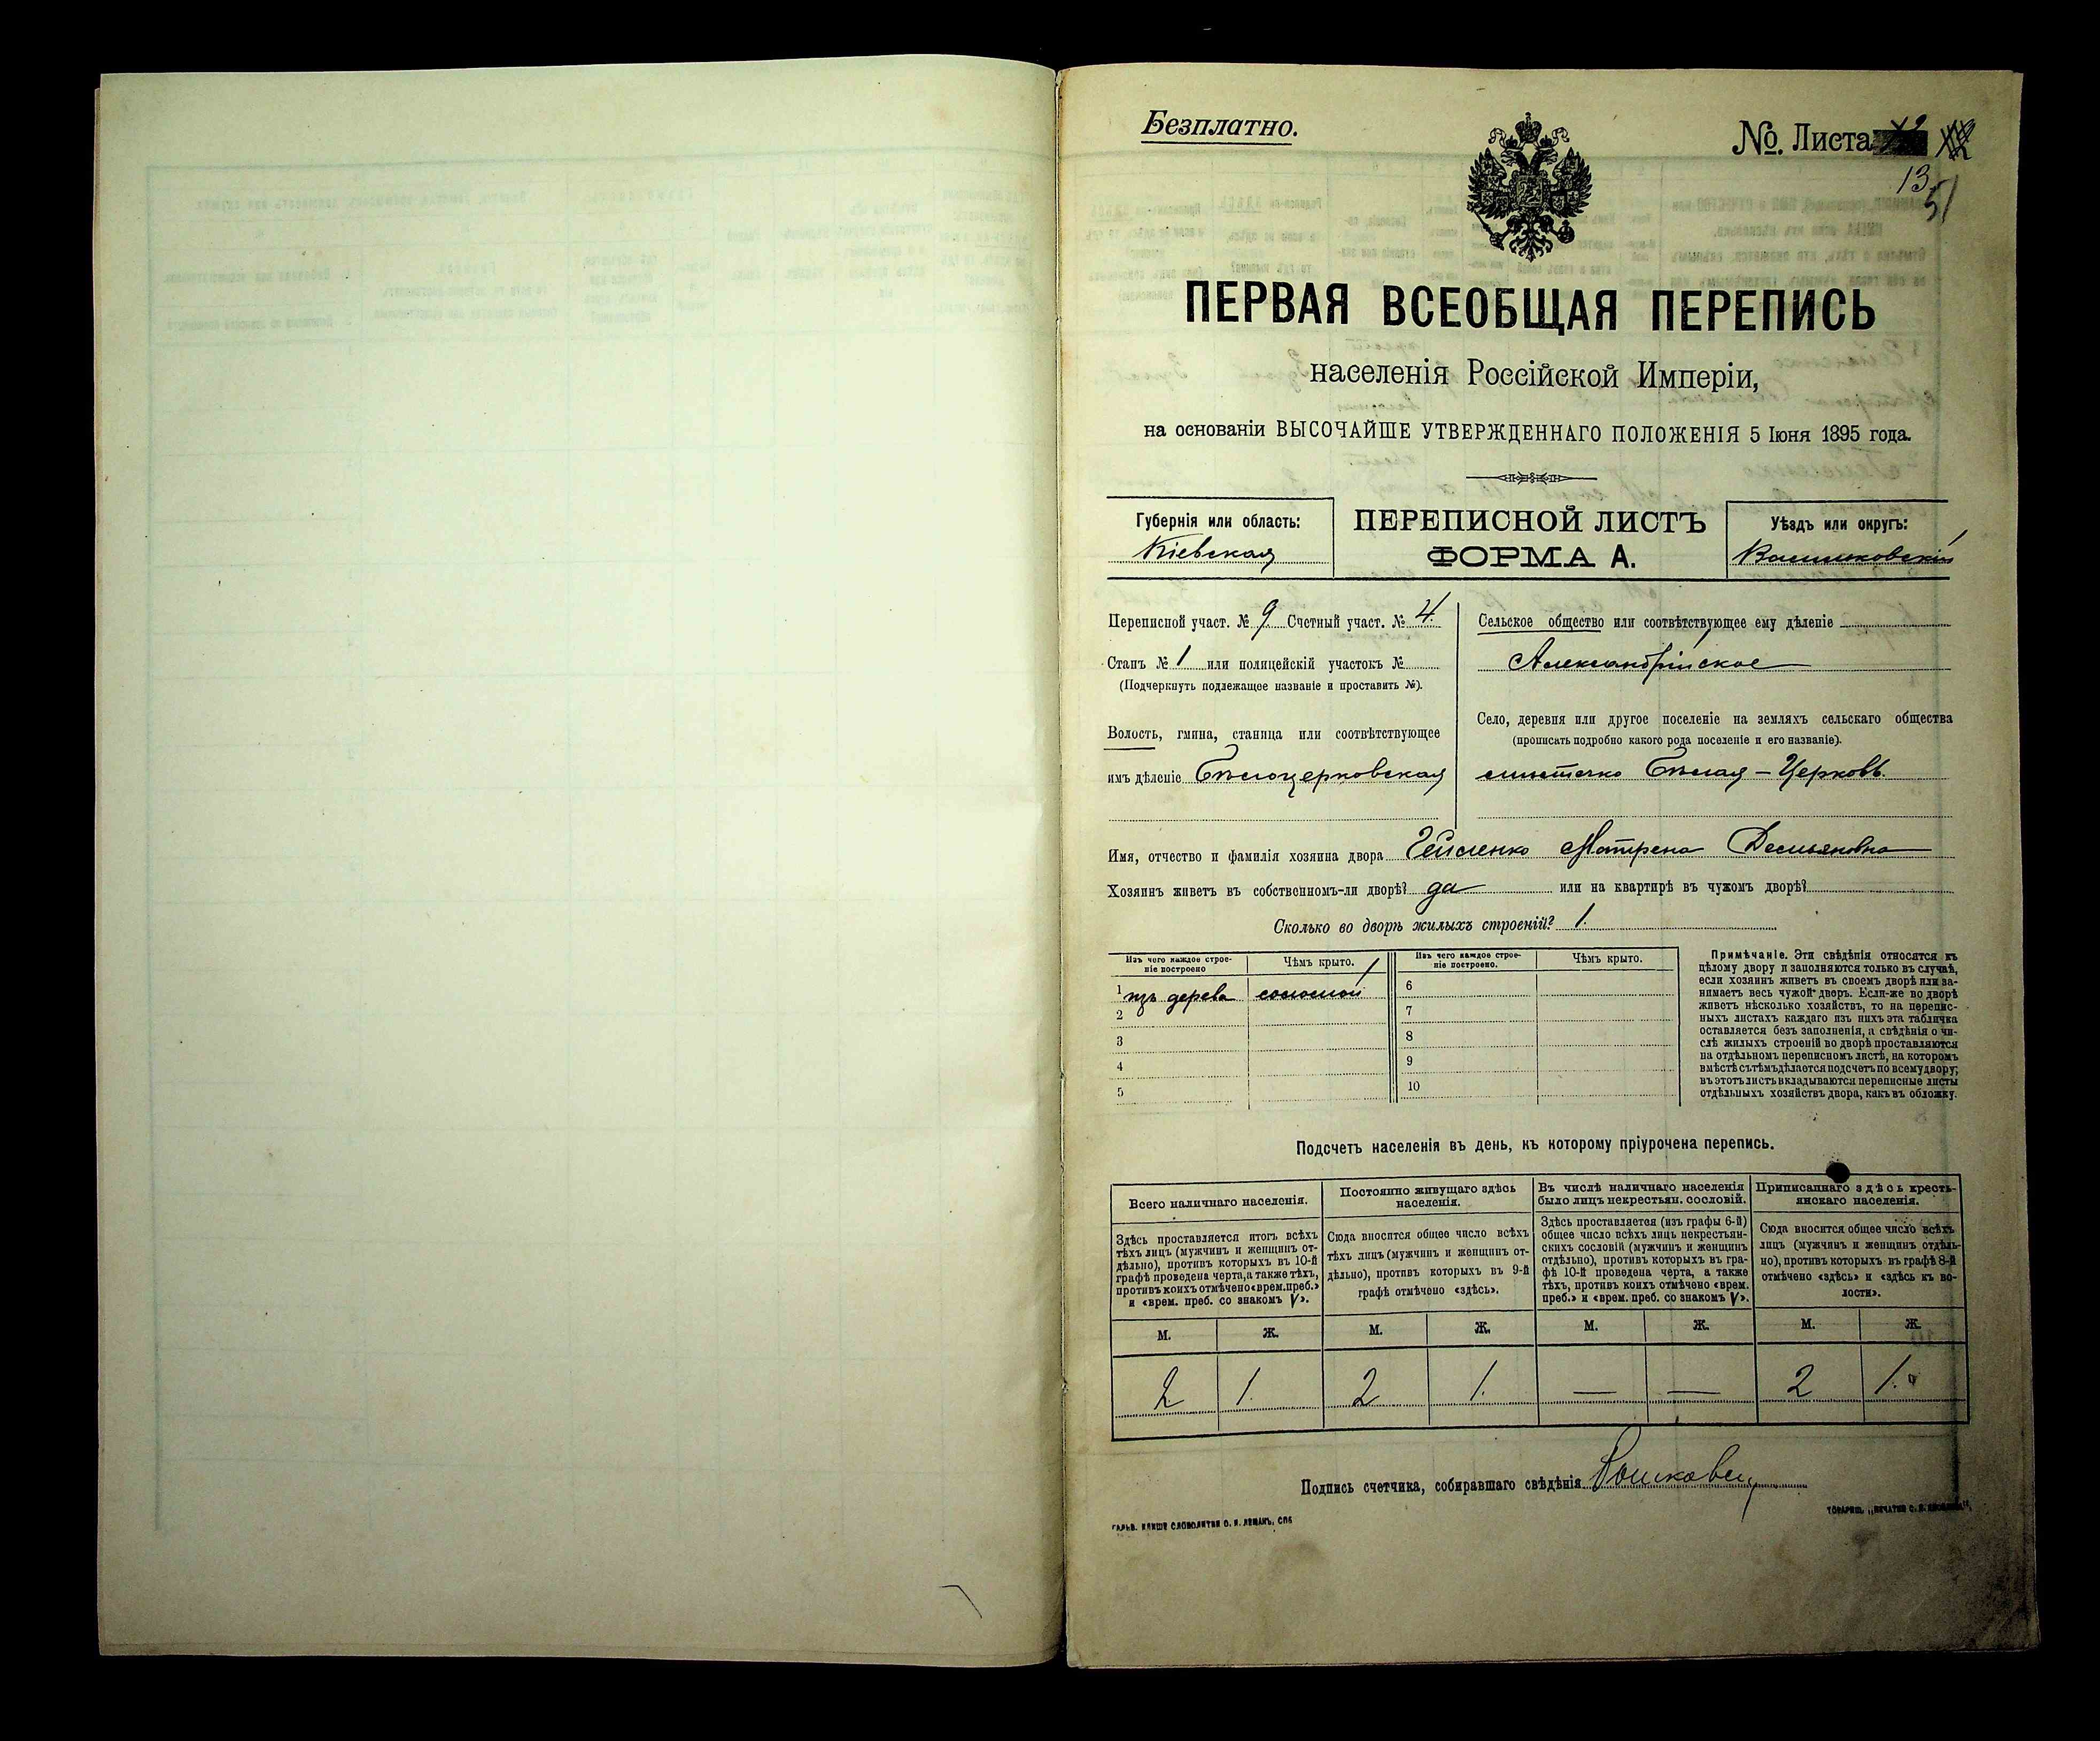 Безплатно.
№. Листа
13
51
ПЕРВАЯ ВСЕОБЩАЯ ПЕРЕПИСЬ
населенія Россійской Имперіи,
на основаніи ВЫСОЧАЙШЕ УТВЕРЖДЕННАГО ПОЛОЖЕНІЯ 5 Іюня 1895 года.
Губернія или область:
Кіевская
ПЕРЕПИСНОЙ ЛИСТЪ
ФОРМА А.
Уѣздъ или округъ:
Васильковскій
Переписной участ. № 9 Счетный участ. № 4.
Станъ № 1 или полицейскій участокъ №
(Подчеркнуть подлежащее названіе и проставить №).
Волость, гмина, станица или соотвѣтствующее
имъ дѣленіе Бѣлоцерковская
Сельское общество или соотвѣтствующее ему дѣленіе
Александрійское
Село, деревня или другое поселеніе на земляхъ сельскаго общества
(прописать подробно какого рода поселеніе и его названіе).
мѣстечко Бѣлая-Церковь.
Имя, отчество и фамилія хозяина двора Матрена Демьяновна
Хозяинъ живетъ въ собственномъ-ли дворѣ? да или на квартирѣ въ чужомъ дворѣ?
Сколько во дворѣ жилыхъ строеній? 1.
Изъ чего каждое строе-
ніе построено
Чѣмъ крыто.
Изъ чего каждое строе-
ніе построено.
Чѣмъ крыто.
1 изъ дерева соломой
2
3
4
5
6
7
8
9
10
Примѣчаніе. Эти свѣдѣнія относятся къ
цѣлому двору и заполняются только въ случаѣ,
если хозяинъ живетъ въ своемъ дворѣ или за-
нимаетъ весь чужой дворъ. Если-же во дворѣ
живетъ нѣсколько хозяйствъ, то на перепис-
ныхъ листахъ каждаго изъ нихъ эта табличка
оставляется безъ заполненія, а свѣдѣнія о чи-
слѣ жилыхъ строеній во дворѣ проставляются
на отдѣльномъ переписномъ листѣ, на которомъ
вмѣстѣ съ тѣмъ дѣлается подсчетъ по всему двору;
въ этотъ листъ вкладываются переписные листы
отдѣльныхъ хозяйствъ двора, какъ въ обложку.
Подсчетъ населенія въ день, къ которому пріурочена перепись.
Всего наличнаго населенія.
Здѣсь проставляется итогъ всѣхъ
тѣхъ лицъ (мужчинъ и женщинъ от-
дѣльно), противъ которыхъ въ 10-й
графѣ проведена черта, а также тѣхъ,
противъ коихъ отмѣчено «врем. преб.»
и «врем. преб. со знакомъ V».
Постоянно живущаго здѣсь
населенія.
Сюда вносится общее число всѣхъ
тѣхъ лицъ (мужчинъ и женщинъ от-
дѣльно), противъ которыхъ въ 9-й
графѣ отмѣчено «здѣсь».
Въ числѣ наличнаго населенія
было лицъ некрестьян. сословій.
Здѣсь проставляется (изъ графы 6-й)
общее число всѣхъ лицъ некрестьян-
скихъ сословій (мужчинъ и женщинъ
отдѣльно), противъ которыхъ въ гра-
фѣ 10-й проведена черта, а также
тѣхъ, противъ коихъ отмѣчено «врем.
преб.» и «врем. преб. со знакомъ V».
Приписаннаго здѣсь кресть-
янскаго населенія.
Сюда вносится общее число всѣхъ
лицъ (мужчинъ и женщинъ отдѣль-
но), противъ которыхъ въ графѣ 8-й
отмѣчено «здѣсь» и «здѣсь къ во-
лости».
М. Ж. М. Ж. М. Ж. М. Ж.
2 1. 2 1. — — 2 1.
Подпись счетчика, собиравшаго свѣдѣнія
ГАЛЬВ. КЛИШЕ СЛОВОЛИТНИ О. И. ЛЕМАНЪ, СПБ